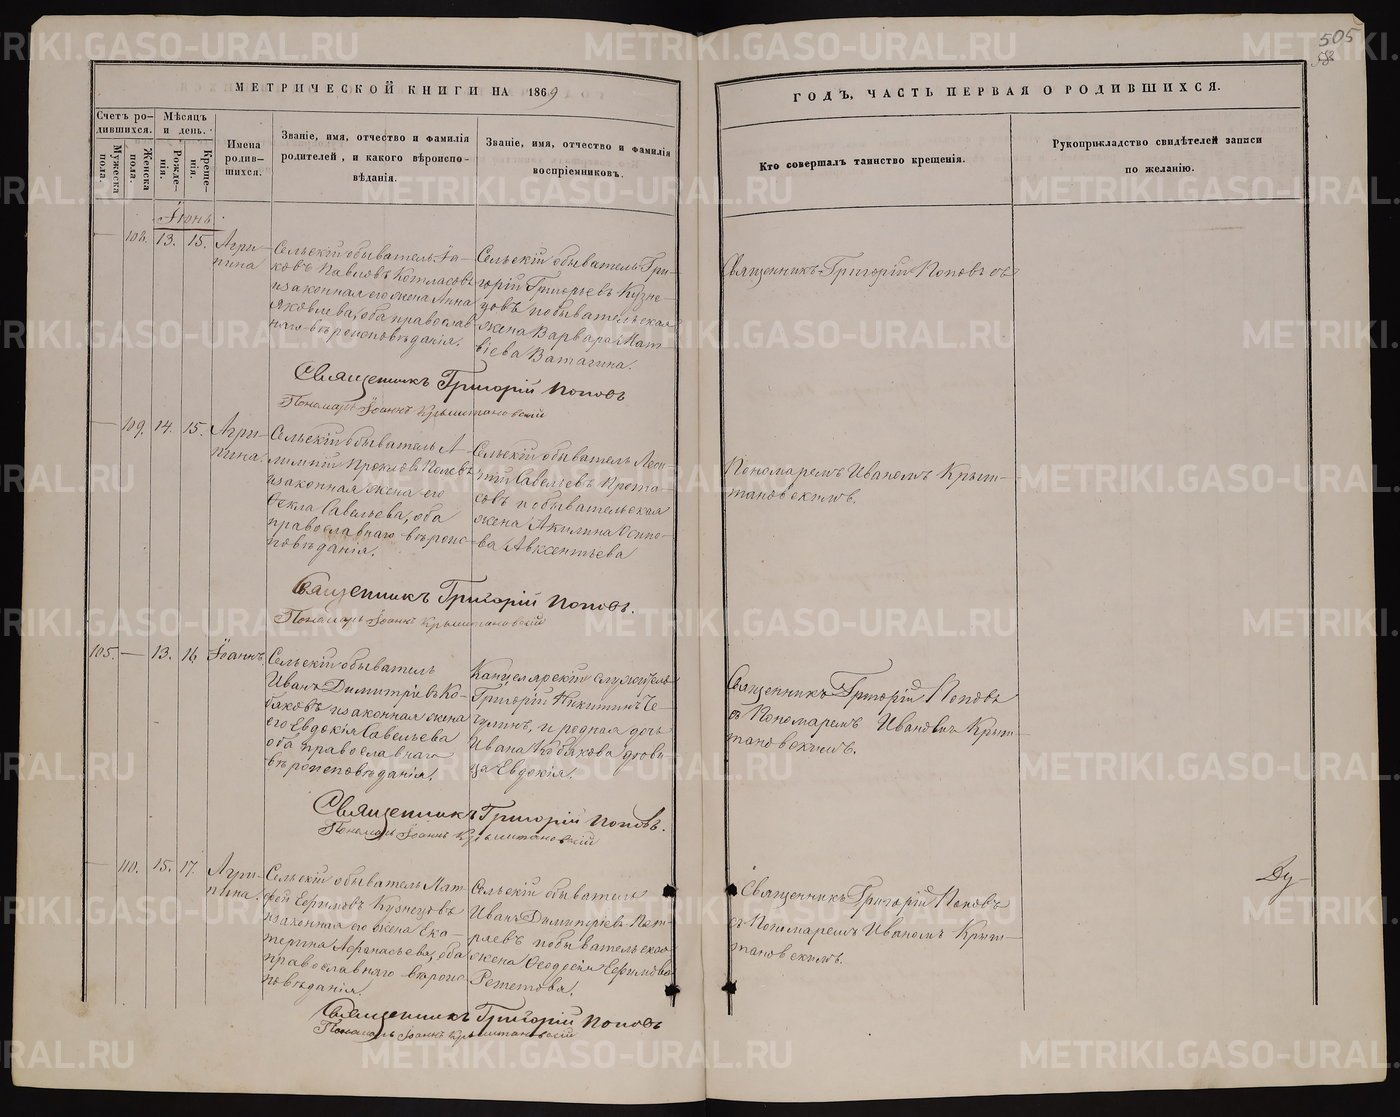 505
58
МЕТРИЧЕСКОЙ КНИГИ НА 1869
ГОДЪ, ЧАСТЬ ПЕРВАЯ О РОДИВШИХСЯ.
Счетъ ро-
дившихся.
Мужеска
пола.
Женска
пола.
Мѣсяцъ
и день.
Рожде-
нія.
Креще-
нія.
Имена
родив-
шихся.
Званіе, имя, отчество и фамилія
родителей, и какого вѣроиспо-
вѣданія.
Званіе, имя, отчество и фамилія
воспріемниковъ.
Кто совершалъ таинство крещенія.
Рукоприкладство свидѣтелей записи
по желанію.
Іюнь.
— 108. 13. 15.
Агри-
пина
Сельскій обыватель Іа-
ковъ Павловъ Котласовъ
и законная его жена Анна
Яковлева, оба православ-
наго вѣроисповѣданія.
Сельскій обыватель Гри-
горій Григорьевъ Кузне-
цовъ и обывательская
жена Варвара Мат
віева Ватагина.
Священникъ Григорій Поповъ съ
Священникъ Григорій Поповъ
Пономарь Іоаннъ Крыштановскій
— 109. 14. 15.
Агри-
пина.
Сельскій обыватель А-
лимпій Прокловъ Полевъ
и законная жена его
Ѳекла Савельева, оба
православнаго вѣроис-
повѣданія.
Сельскій обыватель Леон-
тій Савельевъ Прота-
совъ и обывательская
жена Акилина Осипо-
ва Авксентьева
Пономаремъ Иваномъ Крыш-
тановскимъ.
Священникъ Григорій Поповъ.
Пономарь Іоаннъ Крыштановскій
105. — 13. 16
Іоаннъ
Сельскій обыватель
Иванъ Димитріевъ Ко-
бяковъ и законная жена
его Евдокія Савельева
оба православнаго
вѣроисповѣданія.
Канцелярскій служитель
Григорій Никитинъ Че-
гулинъ, и родная дочь
Ивана Кобякова дѣви-
ца Евдокія.
Священникъ Григорій Поповъ
съ Пономаремъ Иваномъ Крыш
тановскимъ.
Священникъ Григорій Поповъ.
Пономарь Іоаннъ Крыштановскій
— 110. 15. 17.
Агри-
пина.
Сельскій обыватель Мат-
ѳей Ефимовъ Кузнецовъ
и законная его жена Ека-
терина Аѳанасьева, оба
православнаго вѣроис-
повѣданія.
Сельскій обыватель
Иванъ Димитріевъ
и обывательская
жена Ѳеодосія Ефимова
Решетова.
Священникъ Григорій Поповъ
съ Пономаремъ Иваномъ Крыш-
тановскимъ.
Священникъ Григорій Поповъ
Пономарь Іоаннъ Крыштановскій
METRIKI.GASO-URAL.RU